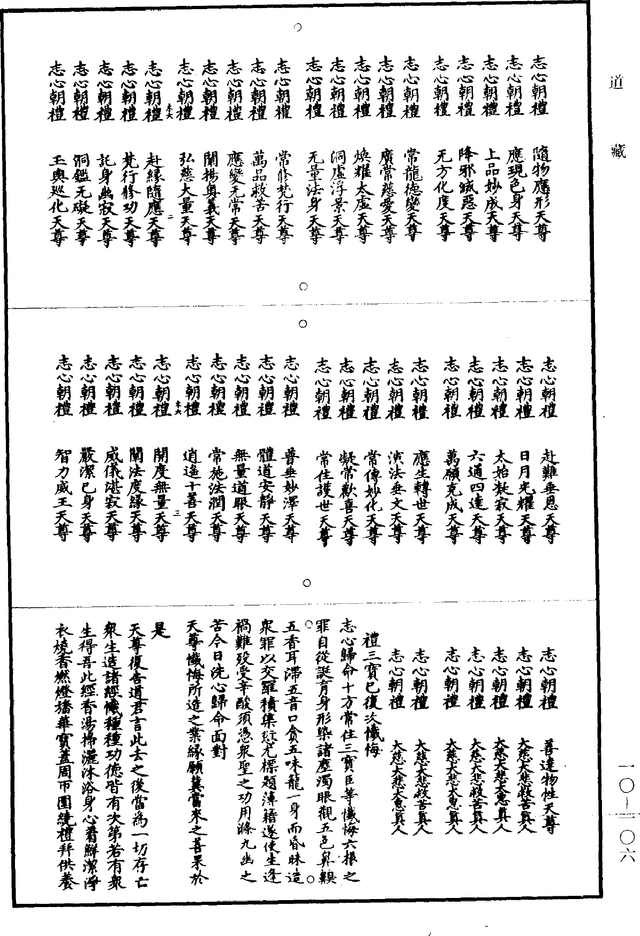 道藏
志心朝禮　隨物應形天尊
志心朝禮　應現色身天尊
志心朝禮　上品妙成天尊
志心朝禮　降邪滅惡天尊
志心朝禮　无方化度天尊
志心朝禮　常龍德變天尊
志心朝禮　廣常慈愛天尊
志心朝禮　煥耀太虛天尊
志心朝禮　洞虛浮景天尊
志心朝禮　无量法身天尊
志心朝禮　常修梵行天尊
志心朝禮　萬品救苦天尊
志心朝禮　應變无常天尊
志心朝禮　闡揚奧義天尊
志心朝禮　弘慈大量天尊
二
志心朝禮　赴緣隨應天尊
志心朝禮　梵行修功天尊
志心朝禮　託身幽寂天尊
志心朝禮　洞鑑无礙天尊
志心朝禮　玉輿巡化天尊
志心朝禮　赴難垂恩天尊
志心朝禮　日月光耀天尊
志心朝禮　太始凝寂天尊
志心朝禮　六通四達天尊
志心朝禮　萬願克成天尊
志心朝禮　應生轉世天尊
志心朝禮　演法垂文天尊
志心朝禮　常傳妙化天尊
志心朝禮　凝常歡喜天尊
志心朝禮　常住護世天尊
志心朝禮　普垂妙澤天尊
志心朝禮　體道安靜天尊
志心朝禮　無量道眼天尊
志心朝禮　常施法潤天尊
志心朝禮　逍遙十善天尊
三
志心朝禮　開度無量天尊
志心朝禮　闡法度緣天尊
志心朝禮　威儀湛寂天尊
志心朝禮　嚴潔己身天尊
志心朝禮　智力威王天尊
志心朝禮　善達物性天尊
志心朝禮　大慈大悲太惠真人
志心朝禮　大慈大悲救苦真人
志心朝禮　大慈大悲救苦真人
志心朝禮　大慈大悲太惠真人
志心朝禮　大慈大悲救苦真人
志心朝禮　大慈大悲太惠真人
禮三寶已復次懺悔
志心歸命十方常住三寶臣等懺悔六根之
罪自從誕育身形染諸塵濁眼觀五色鼻齅
五香耳滯五音口貪五味龍一身而昏昧造
眾罪以交羅積集愆尤標題簿籍遂使生逢
禍難歿受辛酸須憑眾聖之功用滌九幽之
苦今日洗心歸命面對
天尊懺悔所造之業緣願冀當來之善果於
是
天尊復告道君言此去之後當為一切存亡
眾生造諸經懺種種功德皆有次第若有眾
生得吾此經香湯掃灑沐浴身心著鮮潔淨
衣燒香燃燈播華寶蓋周帀圍繞禮拜供養
一〇—一〇六